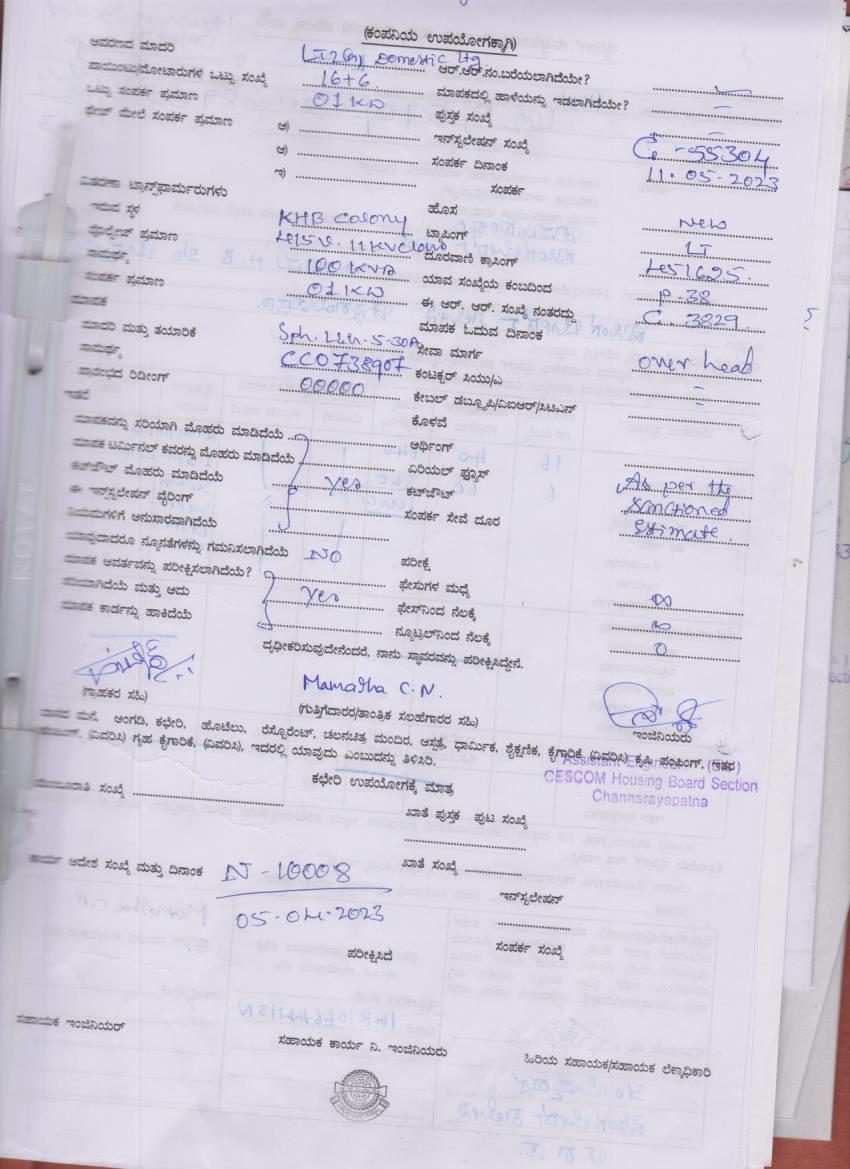 (ಕಂಪನಿಯ ಉಪಯೋಗಕ್ಕಾಗಿ)
ಆವರಣದ ಮಾದರಿ LT2(a) Domestic ltg ಆರ್.ಆರ್.ನಂ.ಬರೆಯಲಾಗಿದೆಯೇ?
ಪಾಯಿಂಟು/ಮೋಟಾರುಗಳ ಒಟ್ಟು ಸಂಖ್ಯೆ 16+6 ಮಾಪಕದಲ್ಲಿ ಹಾಳೆಯನ್ನು ಇಡಲಾಗಿದೆಯೇ? –
ಒಟ್ಟು ಸಂಪರ್ಕ ಪ್ರಮಾಣ 01 KW ಪುಸ್ತಕ ಸಂಖ್ಯೆ –
ಮೇಲೆ ಸಂಪರ್ಕ ಪ್ರಮಾಣ ಅ) ಇನ್‌ಸ್ಟಲೇಷನ್ ಸಂಖ್ಯೆ -55304
ಆ) ಸಂಪರ್ಕ ದಿನಾಂಕ 11.05-2023
ಇ) ಸಂಪರ್ಕ
ವಿತರಣಾ ಟ್ರಾನ್ಸ್‌ಫಾರ್ಮರುಗಳು ಹೊಸ New
ಇರುವ ಸ್ಥಳ KHB Colony ಟ್ಯಾಪಿಂಗ್ LT
ವೋಲ್ಟೇಜ್ ಪ್ರಮಾಣ 415V. 11KV ದೂರವಾಣಿ ಕ್ರಾಸಿಂಗ್
ಸಾಮರ್ಥ್ಯ 100 KVA ಯಾವ ಸಂಖ್ಯೆಯ ಕಂಬದಿಂದ P-38
ಸಂಪರ್ಕ ಪ್ರಮಾಣ 01 KW ಈ ಆರ್. ಆರ್. ಸಂಖ್ಯೆ ನಂತರದ್ದು 3829
ಮಾಪಕ ಮಾಪಕ ಓದುವ ದಿನಾಂಕ
ಮಾದರಿ ಮತ್ತು ತಯಾರಿಕೆ 5-30A ಸೇವಾ ಮಾರ್ಗ over head
ಸಾಮರ್ಥ್ಯ CC0738907 ಕಂಟಕ್ಟರ್ ಸಿಯು/ಎ –
ಪ್ರಾರಂಭದ ರಿಡೀಂಗ್ 00000 ಕೇಬಲ್ ಡಬ್ಲ್ಯೂಪಿ/ವಿಐಆರ್/ಸಿಟಿಎಸ್ –
ಇತರೆ ಕೊಳವೆ
ಮಾಪಕವನ್ನು ಸರಿಯಾಗಿ ಮೊಹರು ಮಾಡಿದೆಯೆ ಅರ್ಥಿಂಗ್
ಮಾಪಕ ಟರ್ಮಿನಲ್ ಕವರನ್ನು ಮೊಹರು ಮಾಡಿದೆಯೆ ಏರಿಯಲ್ ಫ್ಯೂಸ್
ಕಟ್‌ಔಟ್ ಮೊಹರು ಮಾಡಿದೆಯೆ Yes ಕಟ್‌ಔಟ್ As per ltg
ಈ ಇನ್‌ಸ್ಟಲೇಷನ್ ವೈರಿಂಗ್ ಸಂಪರ್ಕ ಸೇವೆ ದೂರ Sanctioned
ನಿಯಮಗಳಿಗೆ ಅನುಸಾರವಾಗಿದೆಯೆ estimate.
ಯಾವುದಾದರೂ ನ್ಯೂನತೆಗಳನ್ನು ಗಮನಿಸಲಾಗಿದೆಯೆ NO ಪರೀಕ್ಷೆ
ಮಾಪಕ ಆವರ್ತವನ್ನು ಪರೀಕ್ಷಿಸಲಾಗಿದೆಯೆ? ಫೇಸುಗಳ ಮಧ್ಯೆ ∞
ಸರಿಯಾಗಿದೆಯೆ ಮತ್ತು ಅದು Yes ಫೇಸ್‌ನಿಂದ ನೆಲಕ್ಕೆ ∞
ಮಾಪಕ ಕಾರ್ಡನ್ನು ಹಾಕಿದೆಯೆ ನ್ಯೂಟ್ರಲ್‌ನಿಂದ ನೆಲಕ್ಕೆ 0
ದೃಢೀಕರಿಸುವುದೇನೆಂದರೆ, ನಾನು ಸ್ಥಾವರವನ್ನು ಪರೀಕ್ಷಿಸಿದ್ದೇನೆ.
Mamatha C.N.
(ಗ್ರಾಹಕರ ಸಹಿ) (ಗುತ್ತಿಗೆದಾರರ/ತಾಂತ್ರಿಕ ಸಲಹೆಗಾರರ ಸಹಿ) ಇಂಜಿನಿಯರು
ಮನೆ, ಅಂಗಡಿ, ಕಛೇರಿ, ಹೊಟೆಲು, ರೆಸ್ಟೊರೆಂಟ್, ಚಲನಚಿತ್ರ ಮಂದಿರ, ಆಸ್ಪತ್ರೆ, ಧಾರ್ಮಿಕ, ಶೈಕ್ಷಣಿಕ, ಕೈಗಾರಿಕೆ (ವಿವರಿಸಿ) ಕೃಷಿ ಪಂಪಿಂಗ್, ಇತರ
(ವಿವರಿಸಿ) ಗೃಹ ಕೈಗಾರಿಕೆ, (ವಿವರಿಸಿ), ಇದರಲ್ಲಿ ಯಾವುದು ಎಂಬುದನ್ನು ತಿಳಿಸಿರಿ.
Assistant
CESCOM Housing Board Section
Channarayapatna
ಕಛೇರಿ ಉಪಯೋಗಕ್ಕೆ ಮಾತ್ರ
ಸಂಖ್ಯೆ ಖಾತೆ ಪುಸ್ತಕ ಪುಟ ಸಂಖ್ಯೆ
ಕಾರ್ಯ ಆದೇಶ ಸಂಖ್ಯೆ ಮತ್ತು ದಿನಾಂಕ N-10008 ಖಾತೆ ಸಂಖ್ಯೆ
05.04.2023 ಇನ್‌ಸ್ಟಲೇಷನ್
ಪರೀಕ್ಷಿಸಿದೆ ಸಂಪರ್ಕ ಸಂಖ್ಯೆ
ಸಹಾಯಕ ಇಂಜಿನಿಯರ್ ಸಹಾಯಕ ಕಾರ್ಯ ನಿ. ಇಂಜಿನಿಯರು ಹಿರಿಯ ಸಹಾಯಕ/ಸಹಾಯಕ ಲೆಕ್ಕಾಧಿಕಾರಿ